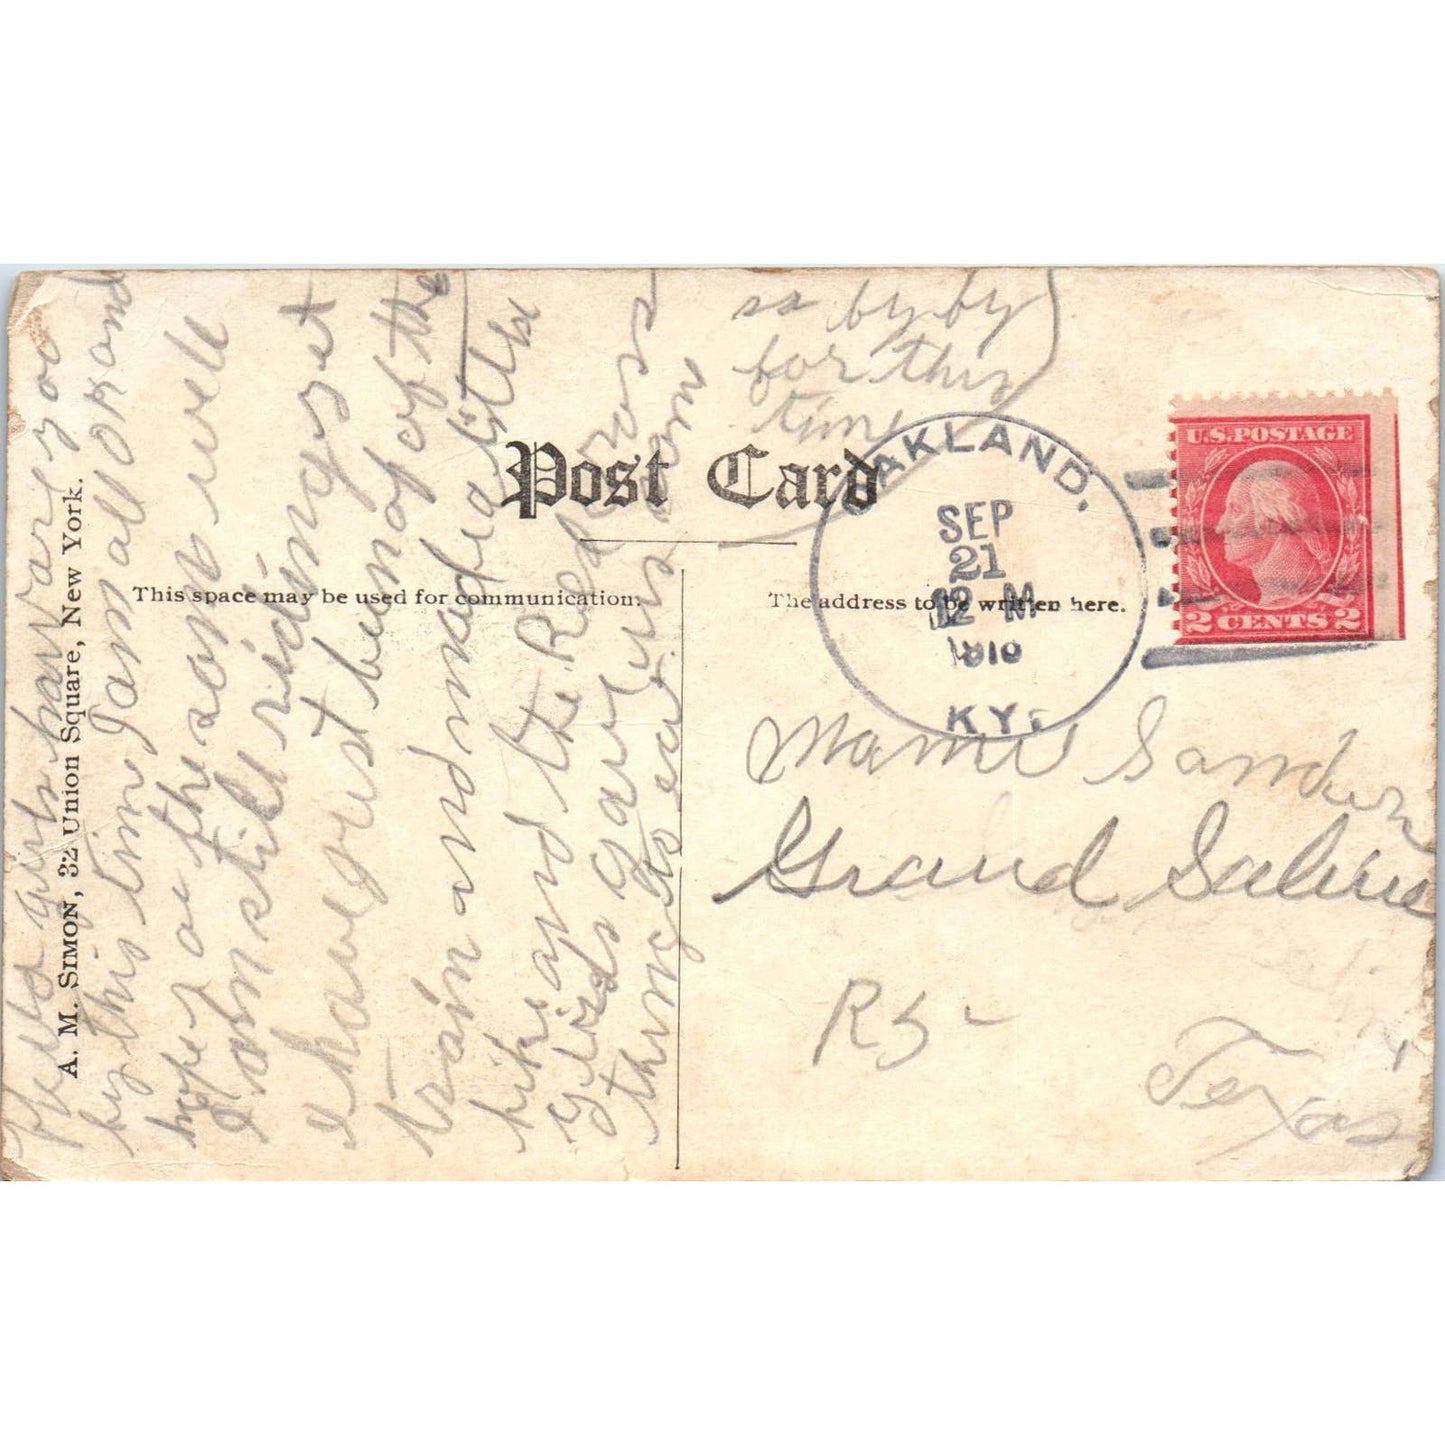 Hello girls how are you
by this time I am all OK and
hope you are the same well
I am still riding yet
I have just bunop of the
train and made a little
hike and the Red Cross
Girls gave us some
things to eat
so by by
for this
time
Post Card
This space may be used for communication.
The address to be written here.
A. M. SIMON, 32 Union Square, New York.
OAKLAND.
SEP
21
12 M
1918
KY.
U.S. POSTAGE
2 CENTS 2
Mamie
Grand Saline
R 5 -
Texas